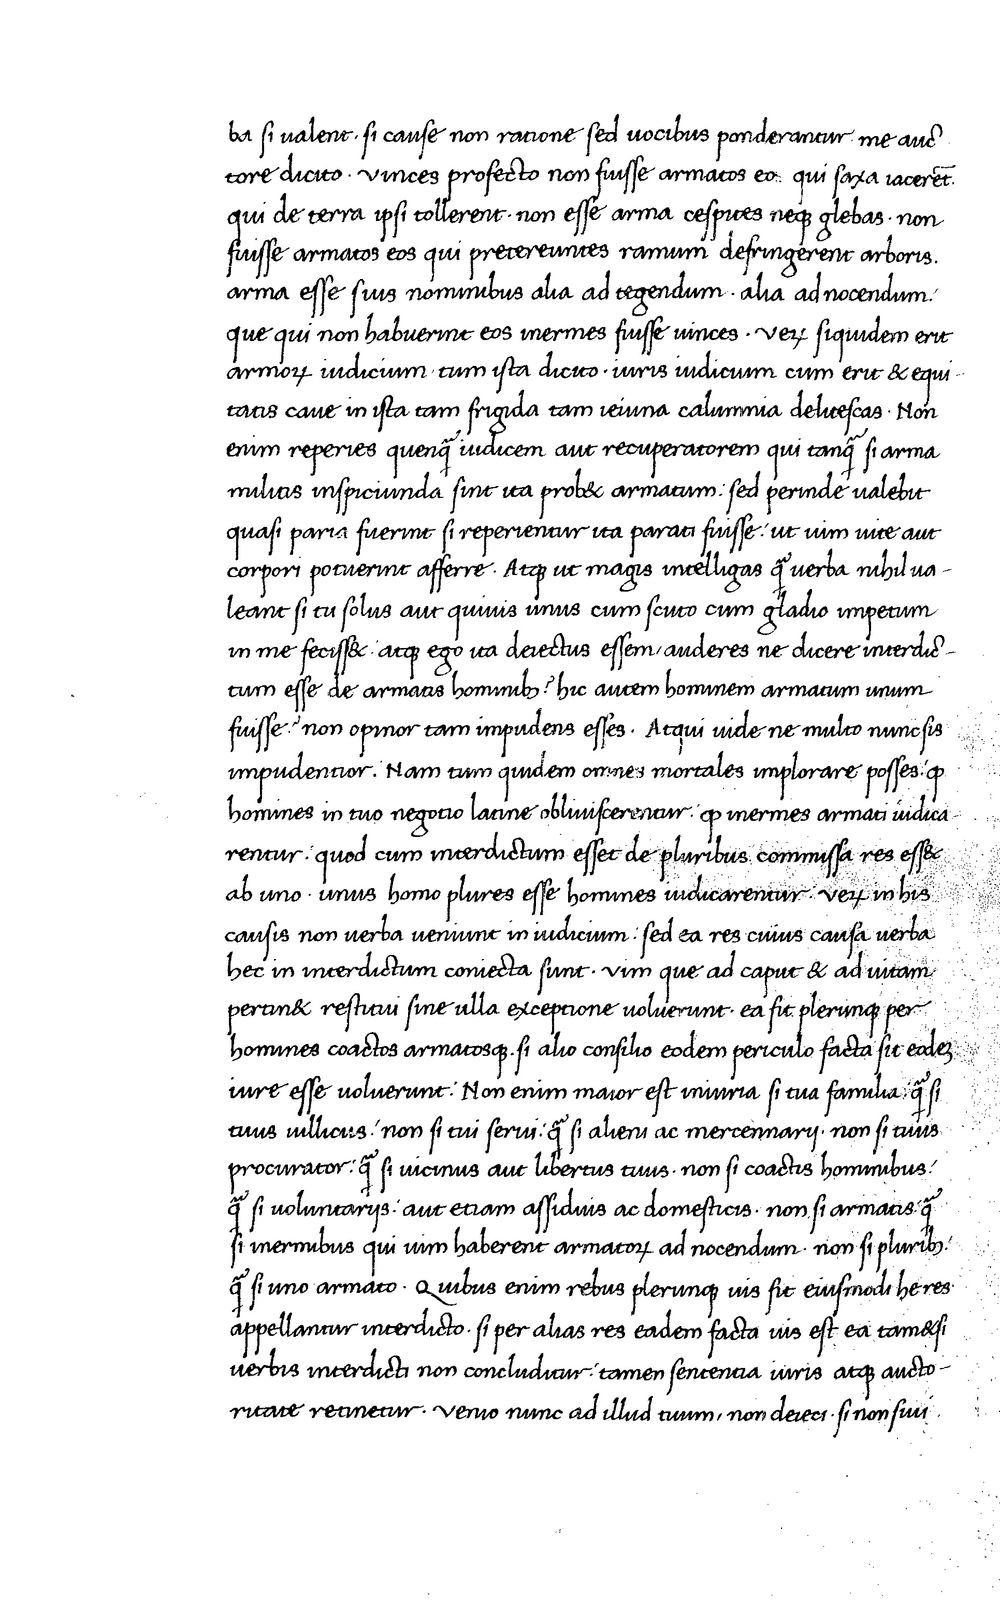 ba si ualent · si cause non ratione sed uocibus ponderantur me auc̄
tore dicito · vinces profecto non fuisse armatos eo. qui saxa iacerēt.
qui de terra ipsi tollerent · non esse arma cespites neqꝫ glebas · non
fuisse armatos eos qui pretereuntes ramum defringerent arboris.
arma esse suis nominibus alia ad tegendum · alia ad nocendum:
que qui non habuerint eos inermes fuisse uinces · Veꝝ siquidem erit
armoꝝ iudicium tum ista dicito · iuris iudicium cum erit & equi-
tatis caue in ista tam frigida tam ieiuna calumnia delitescas · Non
enim reperies quenq̃ iudicem aut recuperatorem qui tanq̃ si arma
militis inspiciunda sint ita prob& armatum: sed perinde ualebit
quasi paria fuerint si reperientur ita parati fuisse: ut uim uite aut
corpori potuerint afferre · Atqꝫ ut magis intelligas q̃ verba nihil ua-
leant si tu solus aut quiuis unus cum scuto cum gladio impetum
in me feciss& · atqꝫ ego ita deiectus essem, auderes ne dicere interdic̄-
tum esse de armatis hominibꝫ? hic autem hominem armatum unum
fuisse? non opinor tam impudens esses · Atqui uide ne multo nunc sis
impudentior. Nam tum quidem omnes mortales implorare posses: ꝙ
homines in tuo negotio latine obliuiscerentur: ꝙ inermes armati iudica-
rentur: quod cum interdictum esset de pluribus commissa res ess&
ab uno · unus homo plures esse homines iudicarentur · Veꝝ in his
causis non uerba ueniunt in iudicium: sed ea res cuius causa uerba
hec in interdictum coniecta sunt · Vim que ad caput & ad uitam
pertin& restitui sine ulla exceptione uoluerunt · ea fit plerunqꝫ per
homines coactos armatosqꝫ. si alio consilio eodem periculo facta sit eodeꝫ
iure esse uoluerunt: Non enim maior est iniuria si tua familia: q̃ si
tuus uillicus: non si tui serui: q̃ si alieni ac mercennarij · non si tuus
procurator: q̃ si uicinus aut libertus tuus · non si coactis hominibus:
q̃ si uoluntarijs: aut etiam assiduis ac domesticis · non si armatis: q̃
si inermibus qui uim haberent armatoꝝ ad nocendum · non si pluribꝫ:
q̃ si uno armato · Quibus enim rebus plerunqꝫ uis fit eiusmodi he res
appellantur interdicto · si per alias res eadem facta uis est ea tam&si
uerbis interdicti non concluditur: tamen sententia iuris atqꝫ aucto-
ritate retinetur · Venio nunc ad illud tuum, non deieci · si non siui